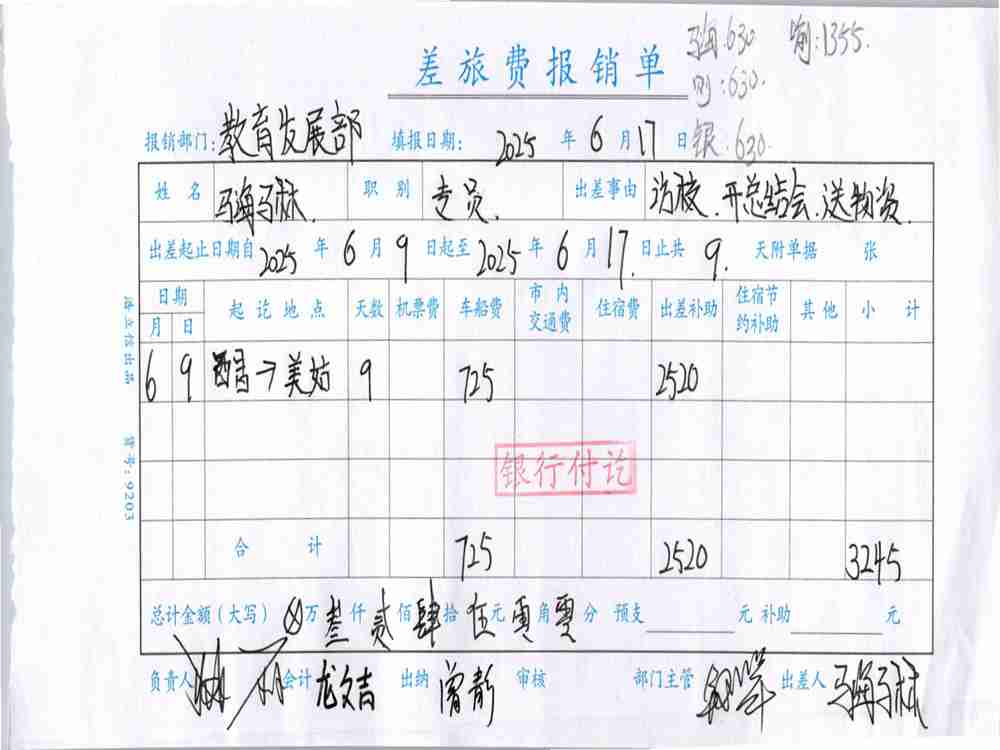 马海:630 :1355.
:630.
差旅费报销单
银:630.
报销部门: 教育发展部 填报日期: 2025 年 6 月 17 日
姓名 马海马林. 职别 专员. 出差事由 访校.开总结会.送物资.
出差起止日期自 2025 年 6 月 9 日起至 2025 年 6 月 17. 日止共 9. 天附单据 张
日期 起讫地点 天数 机票费 车船费 市内交通费 住宿费 出差补助 住宿节约补助 其他 小计
月 日
6 9 →美姑 9 725 2520
银行付讫
合计 725 2520 3245
总计金额(大写) ⊗万叁仟贰佰肆拾伍元零角零分 预支 元 补助 元
负责人 会计 龙文吉 出纳 曾静 审核 部门主管 出差人 马海马林
货号:9203